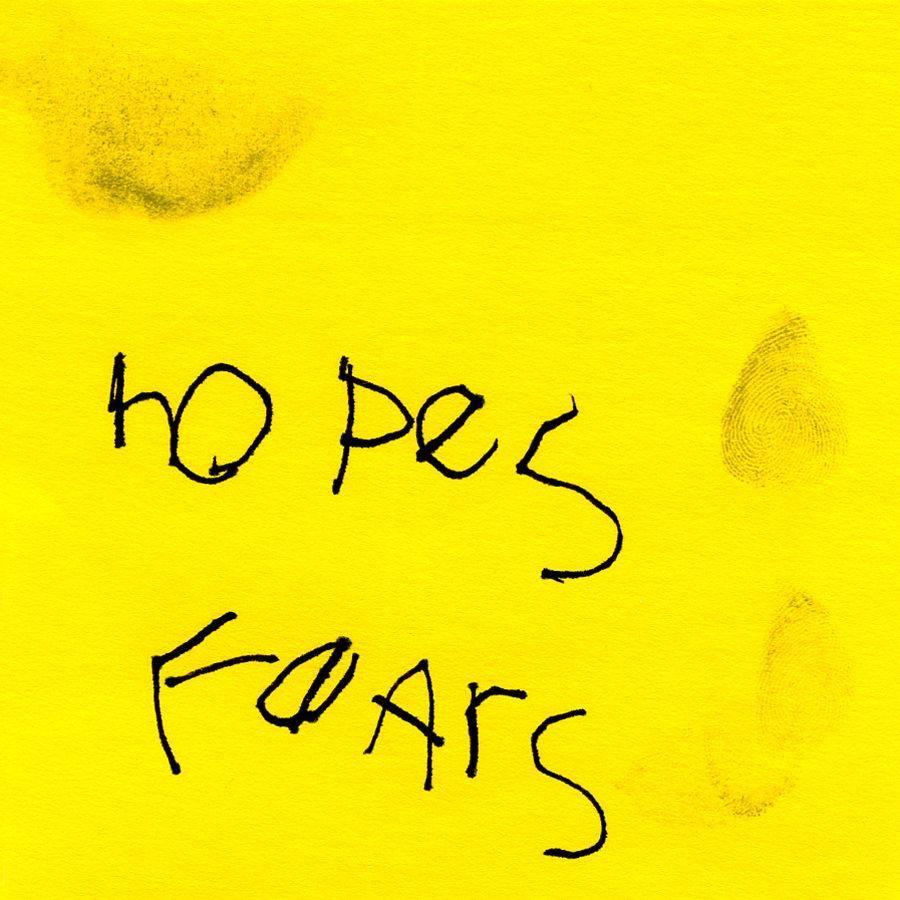 hopes
FeArs